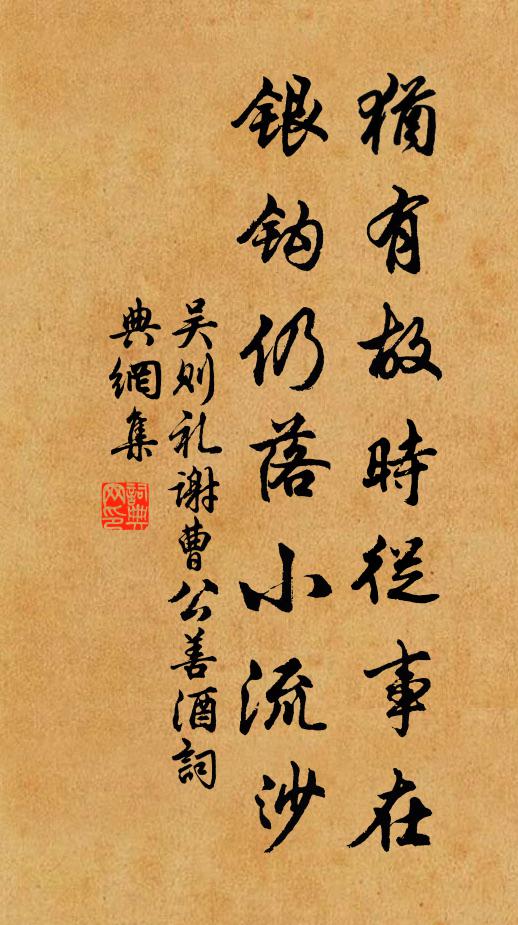 猶有故時從事在
銀鈎仍落小流沙
吴則礼謝曹公善酒詞
典網集
詞典網印